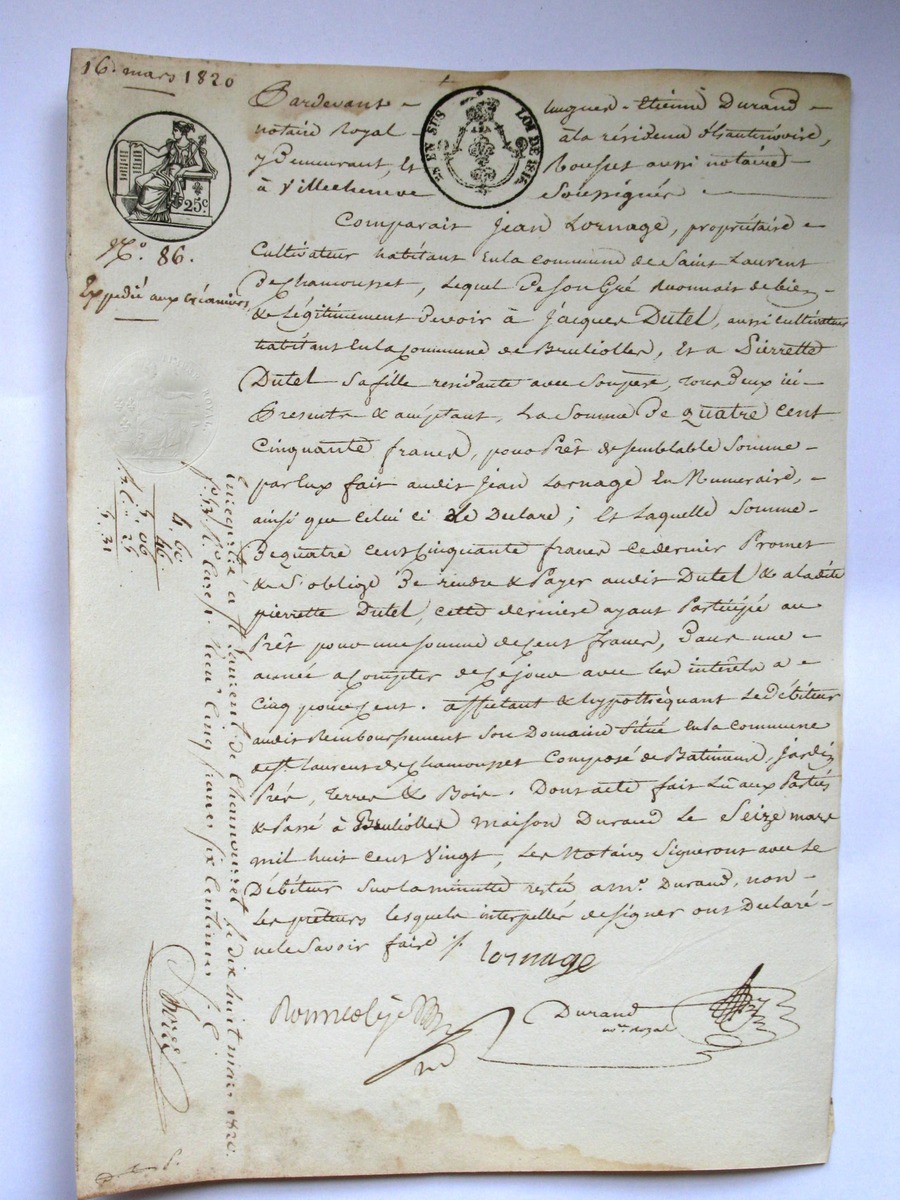 16. mars 1820
Pardevant hugues-Etienne Durand
notaire Royal à la résidence d'hauterivoire,
y Demeurant, et Rousset aussi notaire
à Villecheneve Soussignés
EN SUS LOI DE 1816
25c
Comparait Jean Lornage, propriétaire
Cultivateur habitant En la commune de Saint Laurent
De Chamousset, Lequel De Son Gré reconnait debien
& Légitimement devoir à Jacques Dutel, aussi cultivateur
habitant En la Commune de Brulioller, Et a Pierrette
Dutel Sa fille residante avec Son pere, tous Deux ici
Presents & acceptant, La Somme De quatre cent
Cinquante francs, pour Prêt de semblable Somme
par Eux fait audit Jean Lornage En Numeraire,
ainsi que Celui ci Le Declare; Et Laquelle Somme
De quatre cent Cinquante francs Ce dernier Promet
& S'oblige De rendre & Payer audit Dutel & a la dite
pierrette Dutel, cette derniere ayant Participé au
Prêt pour une Somme de Cent francs, Dans une
année a Compter de Ce jour avec les intérêts a
Cinq pour cent. affectant & hypothéquant Le Débiteur
audit Remboursement Son Domaine Situé En la commune
de St. Laurent de Chamousset Composé de Batiments, Jardin
Prés, terres & Bois. Dont acte fait Lu aux Parties
& Passé à Brulioller maison Durand Le Seize mars
mil huit cent Vingt, Les Notaires Signeront avec Le
Débiteur Sur la minute restée a Me. Durand, non
Les prêteurs lesquels interpellés de signer ont Declaré
ne le Savoir faire
Lornage
Durand
no. royal
No. 86.
Expedié aux créanciers
4, 60
46
5, 06
25
5, 31
Enregistré à St Laurent de Chamousset le dix huit mars 1820.
Reçu cinq francs six centimes